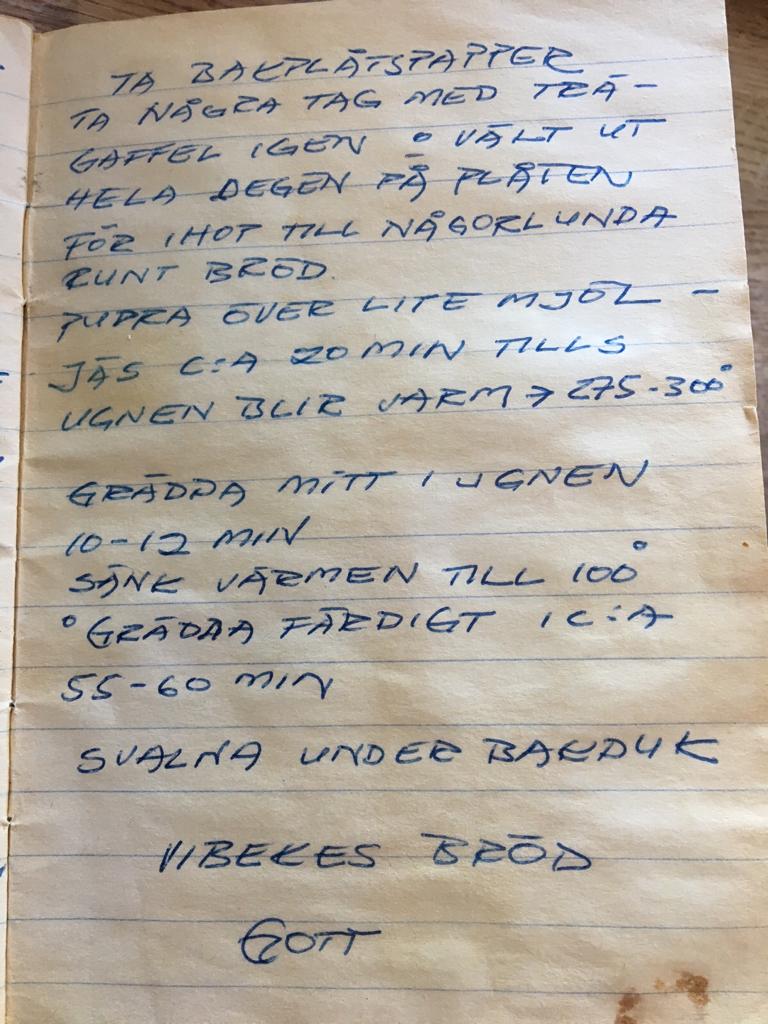 TA BAKPLÅTSPAPPER
TA NÅGRA TAG MED TRÄ-
GAFFEL IGEN ° VÄLT UT
HELA DEGEN PÅ PLÅTEN
FÖR IHOP TILL NÅGORLUNDA
RUNT BRÖD.
PUDRA ÖVER LITE MJÖL -
JÄS C:A 20 MIN TILLS
UGNEN BLIR VARM → 275-300°
GRÄDDA MITT I UGNEN
10-12 MIN
SÄNK VÄRMEN TILL 100°
° GRÄDDA FÄRDIGT I C:A
55-60 MIN
SVALNA UNDER BAKDUK
VIBEKES BRÖD
GOTT